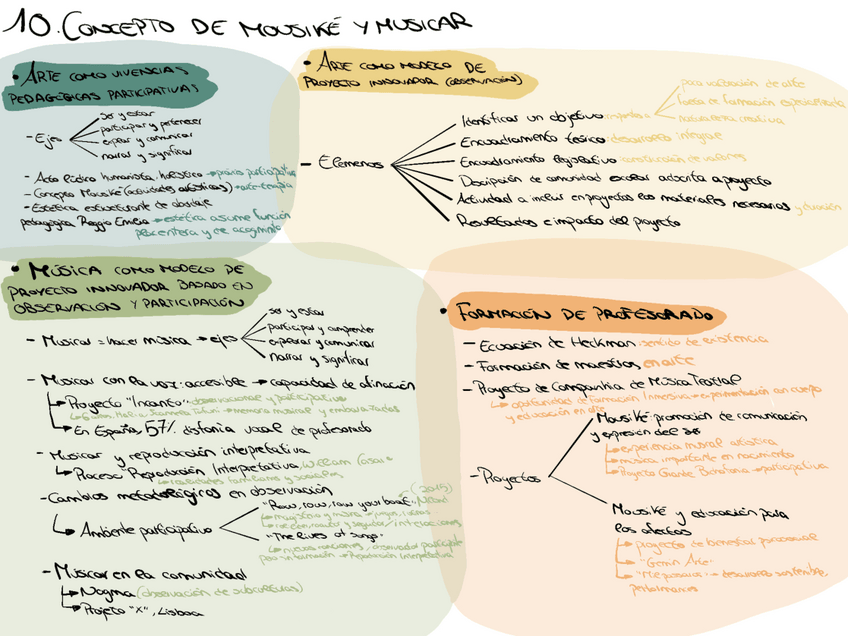 10. CONCEPTO DE MOUSIKÉ Y MUSICAR
• ARTE COMO VIVENCIAS
PEDAGÓGICAS PARTICIPATIVAS
- Ejes
ser y estar
participar y pertenecer
expresar y comunicar
narrar y significar
- Arte lúdico humanista, holístico → praxis participativa
- Concepto Mousiké (actividades artísticas) → arte-terapia
- Estética estructurante de abordaje
pedagógica Reggio Emilia → estética asume función
placentera y de acogimiento
• ARTE COMO MODELO DE
PROYECTO INNOVADOR (OBSERVACIÓN)
- Elemenos
Identificar un objetivo
para valoración de arte
fuerza de formación especializada
naturaleza creativa
Encuadramiento teórico: desarrollo integral
Encuadramiento legislativo: construcción de valores
Descipción de comunidad escolar adscrita a proyecto
Actividad a incluir en proyectos con materiales necesarios y duración
Resultados e impacto del proyecto
• MÚSICA COMO MODELO DE
PROYECTO INNOVADOR BASADO EN
OBSERVACIÓN Y PARTICIPACIÓN
- Musicar = hacer música → ejes
ser y estar
participar y comprender
expresar y comunicar
narrar y significar
- Musicar con la voz: accesible → capacidad de afinación
→ Proyecto "Incanto": observacional y participativo
→ memoria musical y embarazadas
→ En España, 57% disfonía vocal de profesorado
- Musicar y reproducción interpretativa
→ Proceso Reproducción Interpretativa, William Corsaro
→ realidades familiares y sociales
- Cambios metodológicos en observación
→ Ambiente participativo
"Row, row, row your boat": (2015)
"The lives of songs"
participante
→ Reproducción Interpretativa
- Músicar en la comunidad
→ Nogma (observación de subculturas)
→ Projeto "X", Lisboa
• FORMACIÓN DE PROFESORADO
- Ecuación de Heckman: sentido de existencia
- Formación de maestros en arte
- Proyecto de Companhia de Música Teatral
→ oportunidad de Formación Inmersiva → experimentación con cuerpo
y educación en arte
- Proyectos
Mousiké: promoción de comunicación
y expresión del ser
→ experiencia musical artística
→ música importante en nacimiento
→ Proyecto Grande Bichofonia → participativa
Mousiké y educación para
los afectos
→ proyecto de bienestar psicosocial
→ "Germ Arte"
→ desarrollo sostenible,
performances